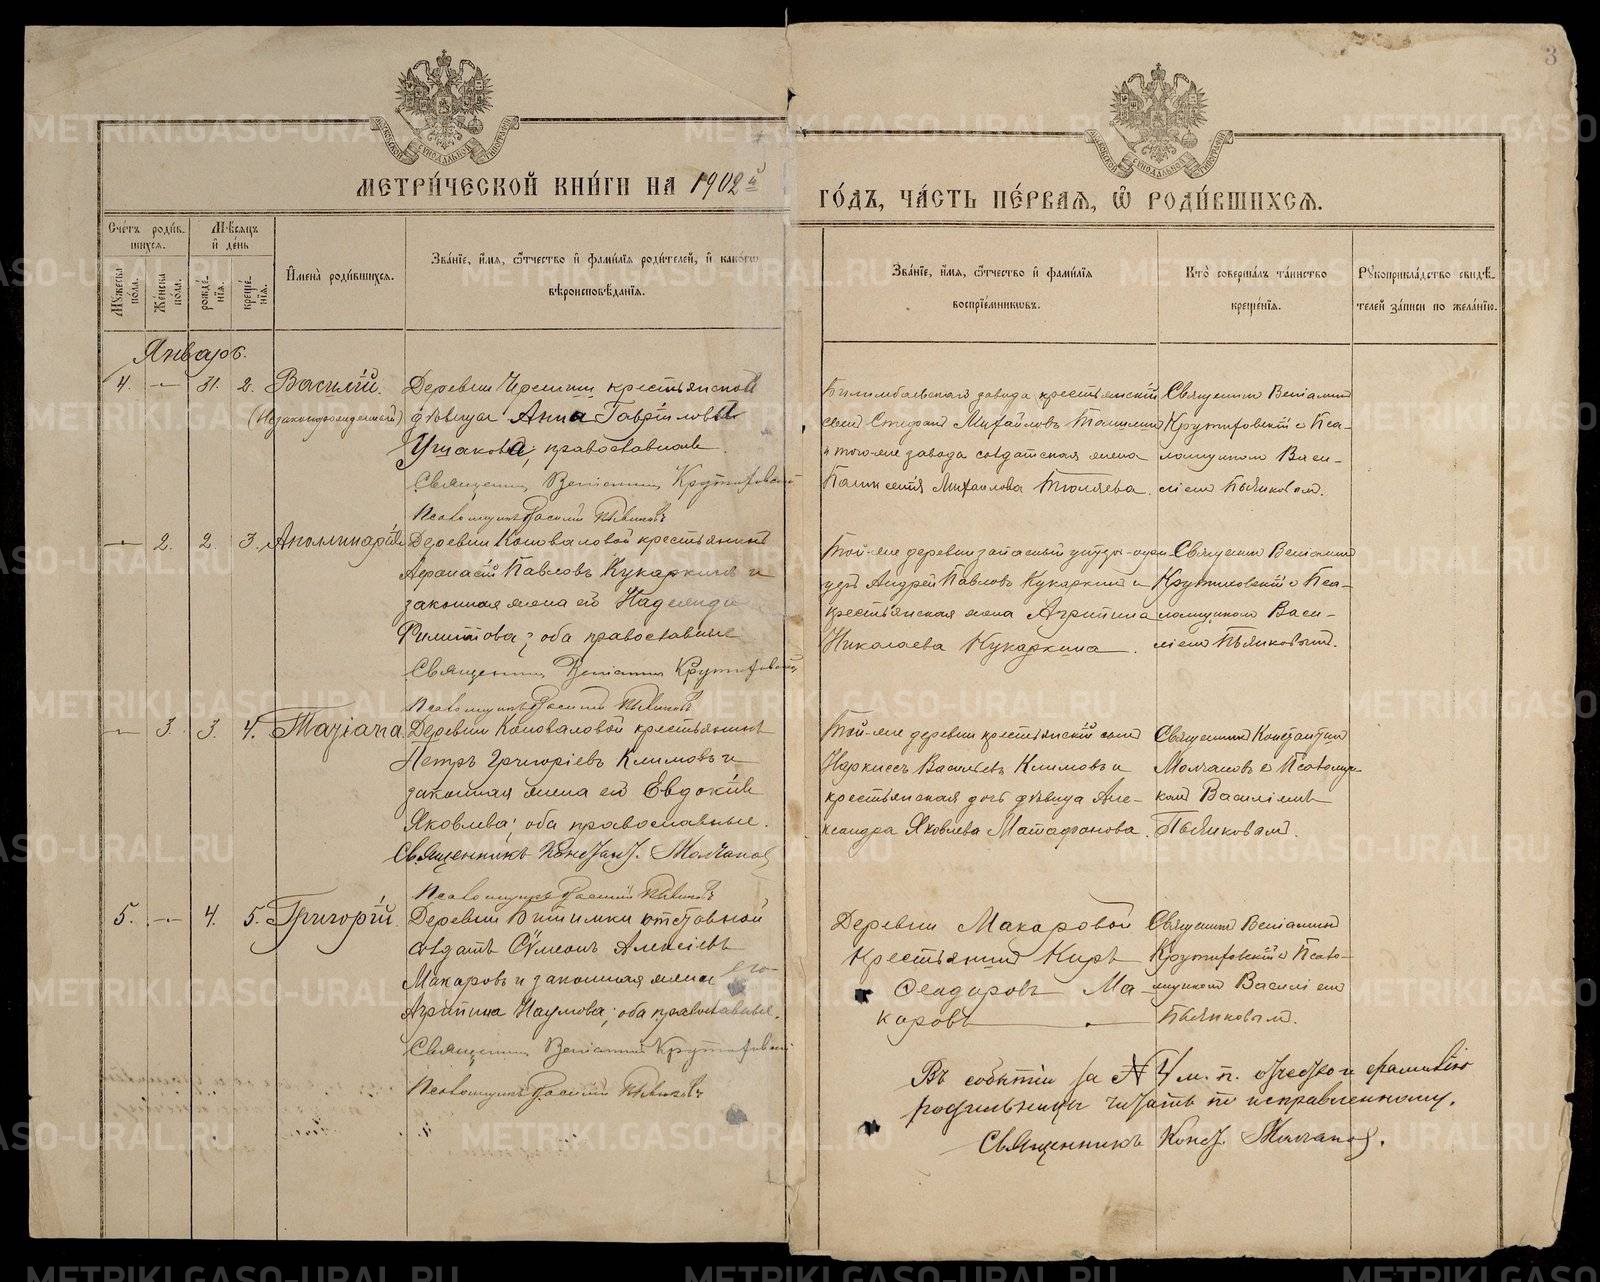 3
МЕТРИ́ЧЕСКОЙ КНИ́ГИ НА 1902й
ГО́ДЪ, ЧА́СТЬ ПЕ́РВАѦ, Ѿ РОДИ́ВШИХСѦ.
Сче́тъ роди́в-
шихсѧ.
Мѣ́сѧцъ
и҆ де́нь
Мꙋ́жеска
по́ла.
Же́нска
по́ла.
рожде́-
нїѧ.
креще́-
нїѧ.
И҆мена̀ роди́вшихсѧ.
Зва́нїе, и҆́мѧ, ѻ҆́тчество и҆ фами́лїѧ роди́телей, и҆ како́гѡ
вѣроисповѣ́данїѧ.
Зва́нїе, и҆́мѧ, ѻ҆́тчество и҆ фами́лїѧ
воспрїе́мникѡвъ.
Кто̀ соверша́лъ та́инство
креще́нїѧ.
Рꙋкоприкла́дство свидѣ́-
телей за́писи по жела́нїю.
Январь.
4. — 31. 2. Василій.
(Незаконнорожденный)
Деревни Черемши крестьянской
дѣвицы Анна Гавріловна
Ушакова, православной.
Священник Веніамин Крутиховскій
Псаломщикъ Василій Пьянковъ
Билимбаевскаго завода крестьянскій
сынъ Стефанъ Михайловъ
и того-же завода солдатская жена
Михайлова
Священник Веніамин
Крутиховскій с Пса-
ломщиком Васи-
ліем Пьянковым.
— 2. 2. 3. Аполлинарія
Деревни Коноваловой крестьянинъ
Афанасій Павловъ Кукаркинъ и
законная жена его Надежда
Филиппова; оба православные
Священник Веніамин Крутиховскій
Псаломщикъ Василій Пьянковъ
Той-же деревни запасный унтеръ-офи-
церъ Андрей Павловъ Кукаркин и
крестьянская жена Агрипина
Николаева Кукаркина.
Священник Веніамин
Крутиховскій с Пса-
ломщиком Васи-
ліем Пьянковым.
— 3. 3. 4. Татіана
Деревни Коноваловой крестьянинъ
Петръ Григоріевъ Климовъ и
законная жена его Евдокія
Яковлева; оба православные.
Священникъ Конст. Молчанов
Псаломщикъ Василій Пьянковъ
Той-же деревни крестьянскій сынъ
Наркиссъ Васильевъ Климовъ и
крестьянская дочь дѣвица Але-
ксандра Яковлева Матафонова.
Священник Константин
Молчановъ с Псаломщи-
ком Василіемъ
Пьянковым.
5. — 4. 5. Григорій.
Деревни Битимки отставной
солдатъ Сѵмеонъ Алексіевъ
Макаровъ и законная жена его
Агрипина Наумова; оба православные.
Священник Веніамин Крутиховскій
Псаломщикъ Василій Пьянковъ
Деревни Макаровой
Крестьянинъ Киръ
Ѳеодоровъ Ма-
каровъ
Священник Веніамин
Крутиховскій с Псало-
мщиком Василіем
Пьянковым.
Въ событіи за № 4 м. п. отчество и фамилію
родильницы читать по исправленному.
Священникъ Конст. Молчанов.
METRIKI.GASO-URAL.RU